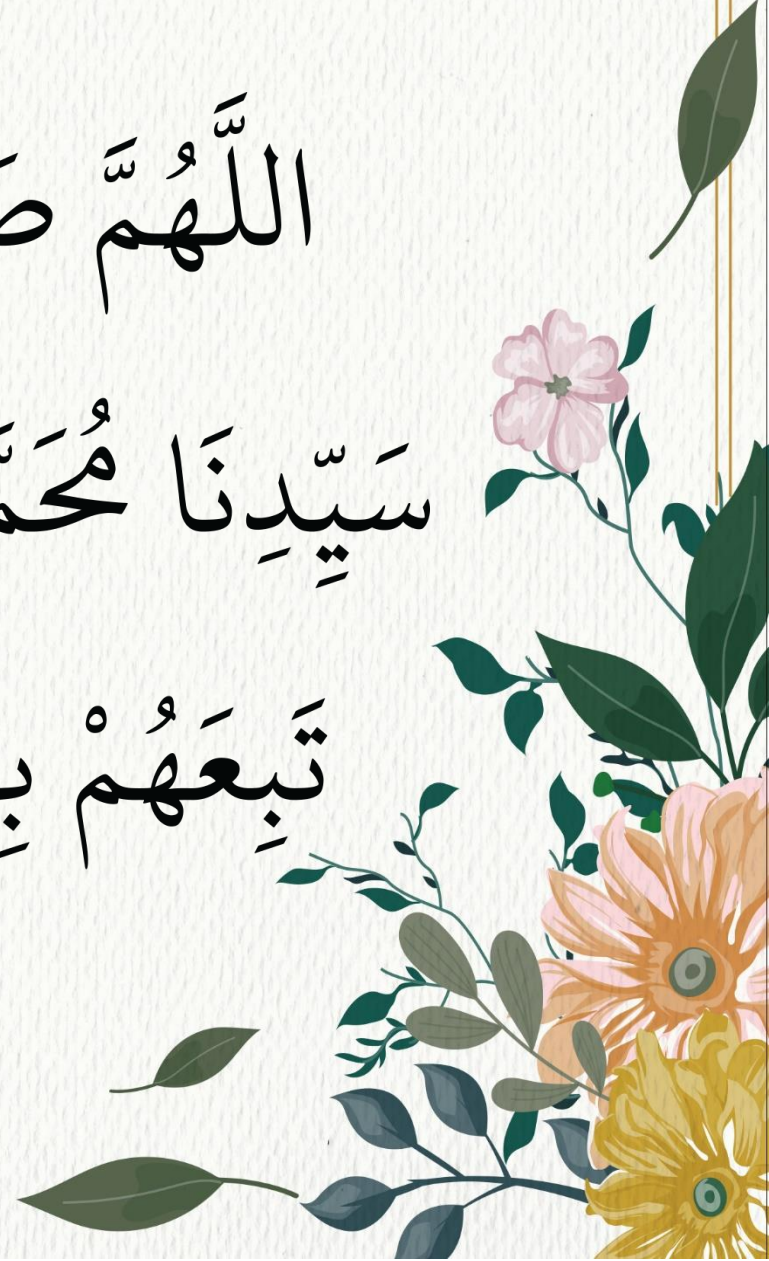 اللَّهُمَّ
سَيِّدِنَا
تَبِعَهُمْ